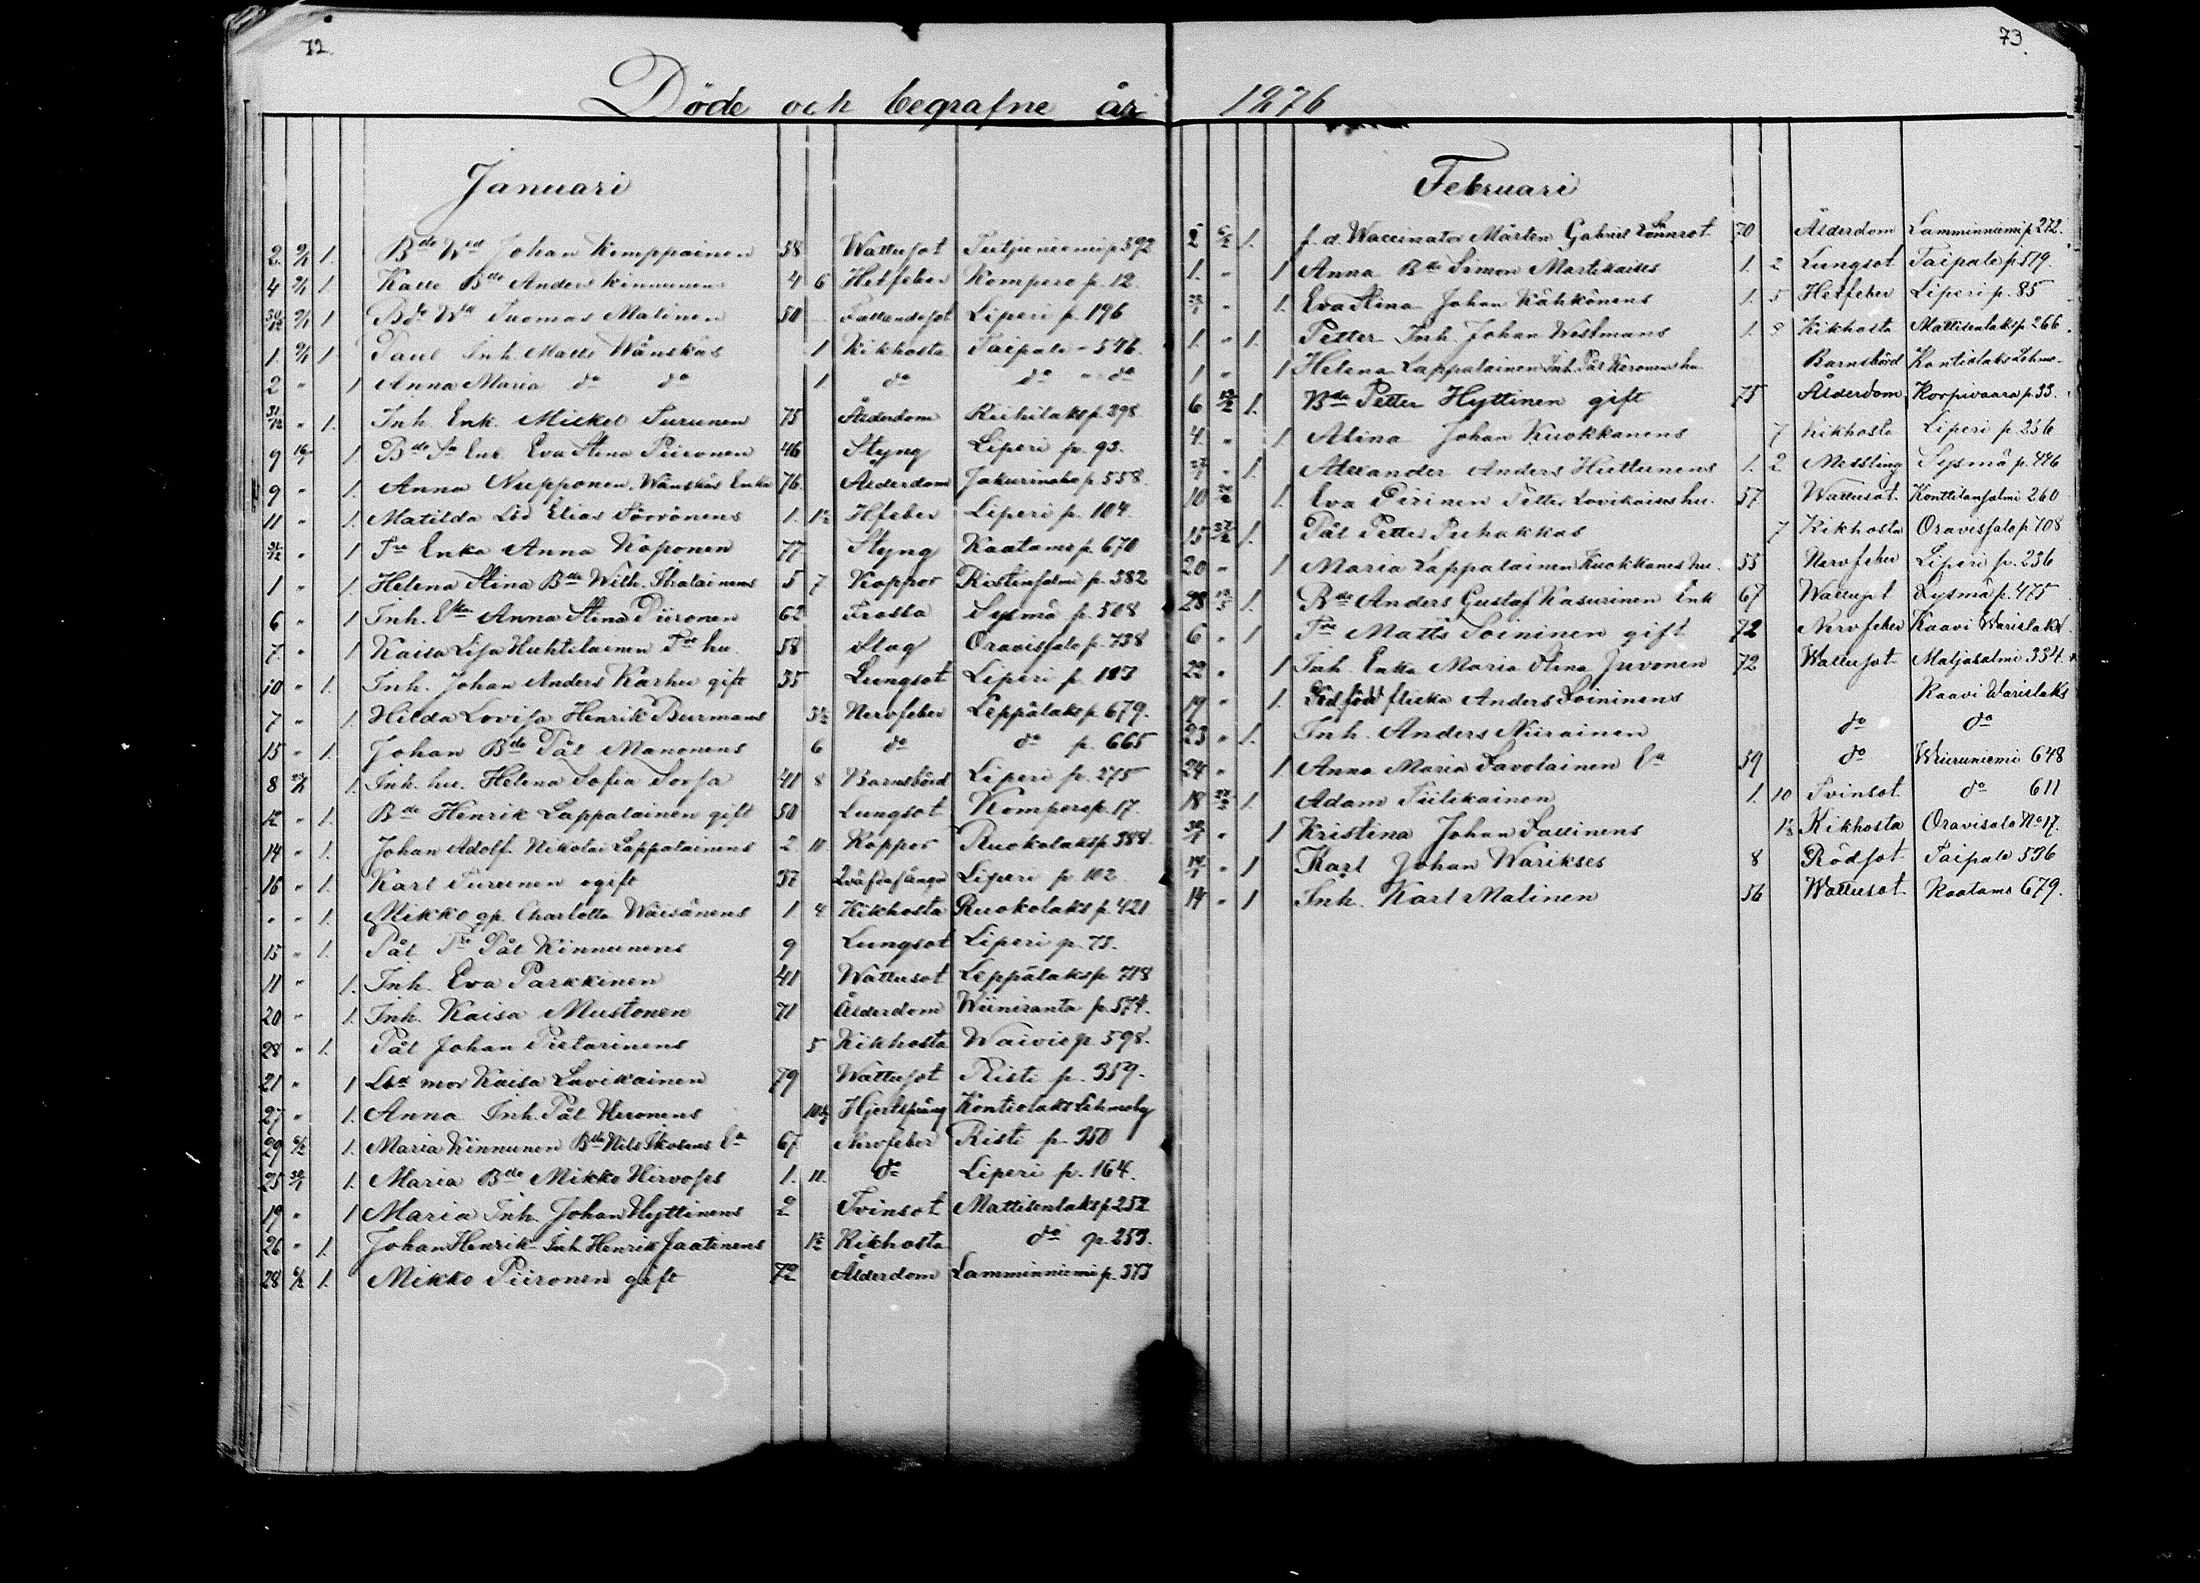 72.
73.
Döde och begrafne år 1876
Januari
2 9/1 1. Bde Wd Johan Komppainen 58 Wattusot Tutjuniemi p 592
4 9/1 1 Kalle Bde Anders Kinnunens 4 6 Hetfeber Kompero p. 12.
30/12 9/1 1 Bde Wd Tuomas Malinen 50 Fallandesot Liperi p. 196
1. 9/1 1 Paul Inh. Matts Wänskäs 1 Kikhosta Taipale - 546.
2 " 1 Anna Maria do do 1 do do " do
31/12 " 1. Inh. Enk. Mickel Turunen 75 Ålderdom Riihilaks p. 298
9 16/1 1 Bde Sa Enk Eva Stina Piironen 46 Styng Liperi p. 93.
9 " 1. Anna Nupponen, Wänskäs Enka 76. Ålderdom Jakurinaho p. 558.
11 " 1. Matilda Löd Elias Törrönens 1. 1½ Hfeber Liperi p. 104
31/12 " 1 Tre Enka Anna Koponen 77 Styng Kaatamo p. 670
1 " 1. Helena Stina Bde Wilh. Ikalainens 5 7 Koppor Ristinsalmi p. 382
6 " 1 Inh. Eka Anna Stina Piironen 62 Frossa Sysmä p. 508
7. " 1 Kaisa Lisa Huhtilainen Tde hu. 58 Slag Oravisalo p. 738
10 " 1. Inh. Johan Anders Karhu gift 35 Lungsot Liperi p. 183
7 " 1. Hilda Lovisa Henrik Burmans 3½ Nervfeber Leppälaks p. 679.
15 " 1. Johan Bde Pål Manonens 6 do do p. 665
8 23/1 1. Inh. hu. Helena Sofia Sorsa 41 8 Barnsbörd Liperi p. 275
12 " 1. Bde Henrik Lappalainen gift 50 Lungsot Kompero p. 17.
14 " 1. Johan Adolf. Nikolai Lappalainens 2 11 Koppor Ruokolaks p. 388.
16 " 1. Karl Turunen ogift 37 Liperi p. 102
" " 1. Mikko gp. Charlotta Wäisänens 1 4. Kikhosta Ruokolaks p. 421
15 " 1. Pål Tre Pål Kinnunens 9 Lungsot Liperi p. 75.
11 " 1. Inh. Eva Parkkinen 41 Wattusot Leppälaks p. 718
20 " 1. Inh. Kaisa Mustonen 71 Ålderdom Wiiniranta p. 574.
28 " 1. Pål Johan Pietarinens 5 Kikhosta Waivio p. 598.
21 " 1 Lbd mor Kaisa Lavikainen 79 Wattusot Risti p. 359.
27 " 1. Anna Inh. Pål Neronens 10½ Hjertspång Kontiolaks Lehmoby
29 6/2 1. Maria Kinnunen Bde Nils Ikolens Ea 67 Nervfeber Risti p. 350
25 30/1 1. Maria Bde Mikko Hirvoses 1. 11. do Liperi p. 164.
19 " 1 Maria Inh. Johan Hyttinens 2 Tvinsot Mattisenlaks p. 252
26 " 1. Johan Henrik Inh. Henrik Jaatinens 1½ Kikhosta do p. 253.
28 6/2 1. Mikko Piironen gift 72 Ålderdom Lamminniemi p. 373
Februari
2 6/2 1. f.d. Waccinator Mårten Gabriel Lönnrot 70 Ålderdom Lamminniemi p. 272.
1. " 1 Anna Bde Simon Martikaises 1. 2 Lungsot Taipale p. 519.
23/1 " 1. Eva Stina Johan Kähkönens 1. 5 Hetfeber Liperi p. 85
1 " 1. Petter Inh. Johan Westmans 1. 8 Kikhosta Mattisenlaks p. 266.
1 " 1 Helena Lappalainen Inh. Pål Neronens hu. Barnsbörd Kontiolaks Lehmo.
6 13/2 1. Bde Petter Hyttinen gift 75 Ålderdom Korpivaara p. 33.
4. " 1 Alina Johan Kuokkanens 7 Kikhosta Liperi p. 256
27/1 " 1. Alexander Anders Huttunens 1. 2 Messling Sysmä p. 496
10 20/2 1. Eva Piirinen Petter Lavikaises hu. 57 Wattusot. Konttilansalmi 260
15 27/2 1. Pål Petter Puhakkas 7 Kikhosta Oravisalo p. 708
20 " 1 Maria Lappalainen Kuokkanens hu. 55 Nervfeber Liperi p. 236
28 12/3 1. Bde Anders Gustaf Kasurinen Enk 67 Wattusot Sysmä p. 475
6 " 1 Tre Matts Soininen gift 72 Nervfeber Kaavi Warislaks
22 " 1 Inh. Enka Maria Stina Juvonen 72 Wattusot Maljasalmi 334.
19 " 1. Dödfödd flicka Anders Soininens Kaavi Warislaks
23 " 1. Inh. Anders Niirainen do do
24 " 1 Anna Maria Savolainen Ea 59 do Wieruniemi 648
18 27/2 1. Adam Tiilikainen 1. 10 Tvinsot do 611
30/1 " 1 Kristina Johan Sallinens 1½ Kikhosta Oravisalo No 17.
14/1 " 1 Karl Johan Warikses 8 Rödsot Taipale 536
14 " 1 Inh. Karl Malinen 56 Wattusot Kaatamo 679.